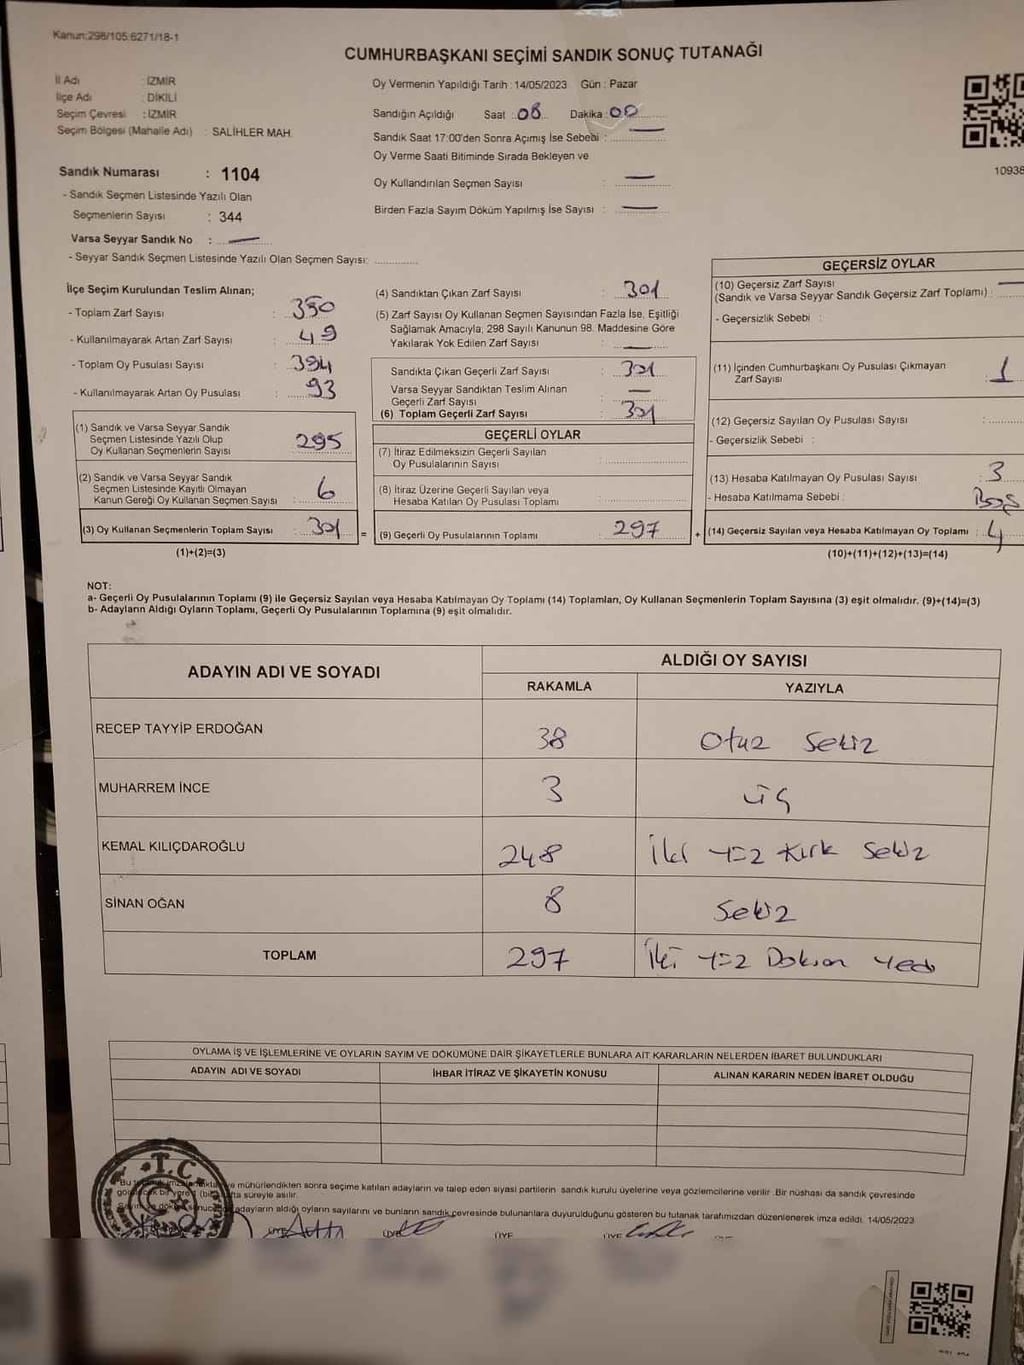 Kanun:298/105:6271/18-1
CUMHURBAŞKANI SEÇİMİ SANDIK SONUÇ TUTANAĞI
İl Adı : İZMİR
İlçe Adı : DİKİLİ
Seçim Çevresi : İZMİR
Seçim Bölgesi (Mahalle Adı) : SALİHLER MAH.
Oy Vermenin Yapıldığı Tarih : 14/05/2023 Gün : Pazar
Sandığın Açıldığı Saat : 08 Dakika : 00
Sandık Saat 17:00'den Sonra Açımış İse Sebebi : —
Oy Verme Saati Bitiminde Sırada Bekleyen ve
Oy Kullandırılan Seçmen Sayısı : —
Birden Fazla Sayım Döküm Yapılmış İse Sayısı : —
10938
Sandık Numarası : 1104
- Sandık Seçmen Listesinde Yazılı Olan
Seçmenlerin Sayısı : 344
Varsa Seyyar Sandık No : —
- Seyyar Sandık Seçmen Listesinde Yazılı Olan Seçmen Sayısı:
İlçe Seçim Kurulundan Teslim Alınan;
- Toplam Zarf Sayısı : 350
- Kullanılmayarak Artan Zarf Sayısı : 49
- Toplam Oy Pusulası Sayısı : 394
- Kullanılmayarak Artan Oy Pusulası : 93
(1) Sandık ve Varsa Seyyar Sandık
Seçmen Listesinde Yazılı Olup
Oy Kullanan Seçmenlerin Sayısı 295
(2) Sandık ve Varsa Seyyar Sandık
Seçmen Listesinde Kayıtlı Olmayan
Kanun Gereği Oy Kullanan Seçmen Sayısı : 6
(3) Oy Kullanan Seçmenlerin Toplam Sayısı : 301
(1)+(2)=(3)
(4) Sandıktan Çıkan Zarf Sayısı : 301
(5) Zarf Sayısı Oy Kullanan Seçmen Sayısından Fazla İse, Eşitliği
Sağlamak Amacıyla, 298 Sayılı Kanunun 98. Maddesine Göre
Yakılarak Yok Edilen Zarf Sayısı : —
Sandıkta Çıkan Geçerli Zarf Sayısı : 301
Varsa Seyyar Sandıktan Teslim Alınan
Geçerli Zarf Sayısı : —
(6) Toplam Geçerli Zarf Sayısı : 301
GEÇERLİ OYLAR
(7) İtiraz Edilmeksizin Geçerli Sayılan
Oy Pusulalarının Sayısı :
(8) İtiraz Üzerine Geçerli Sayılan veya
Hesaba Katılan Oy Pusulası Toplamı :
= (9) Geçerli Oy Pusulalarının Toplamı : 297 +
GEÇERSİZ OYLAR
(10) Geçersiz Zarf Sayısı —
(Sandık ve Varsa Seyyar Sandık Geçersiz Zarf Toplamı) :
- Geçersizlik Sebebi :
(11) İçinden Cumhurbaşkanı Oy Pusulası Çıkmayan
Zarf Sayısı : 1
(12) Geçersiz Sayılan Oy Pusulası Sayısı :
- Geçersizlik Sebebi :
(13) Hesaba Katılmayan Oy Pusulası Sayısı : 3
- Hesaba Katılmama Sebebi : Boş
(14) Geçersiz Sayılan veya Hesaba Katılmayan Oy Toplamı : 4
(10)+(11)+(12)+(13)=(14)
NOT:
a- Geçerli Oy Pusulalarının Toplamı (9) ile Geçersiz Sayılan veya Hesaba Katılmayan Oy Toplamı (14) Toplamları, Oy Kullanan Seçmenlerin Toplam Sayısına (3) eşit olmalıdır. (9)+(14)=(3)
b- Adayların Aldığı Oyların Toplamı, Geçerli Oy Pusulalarının Toplamına (9) eşit olmalıdır.
ADAYIN ADI VE SOYADI ALDIĞI OY SAYISI
RAKAMLA YAZIYLA
RECEP TAYYİP ERDOĞAN 38 Otuz Sekiz
MUHARREM İNCE 3 üç
KEMAL KILIÇDAROĞLU 248 İki yüz kırk sekiz
SİNAN OĞAN 8 Sekiz
TOPLAM 297 İki yüz Doksan yedi
OYLAMA İŞ VE İŞLEMLERİNE VE OYLARIN SAYIM VE DÖKÜMÜNE DAİR ŞİKAYETLERLE BUNLARA AİT KARARLARIN NELERDEN İBARET BULUNDUKLARI
ADAYIN ADI VE SOYADI İHBAR İTİRAZ VE ŞİKAYETİN KONUSU ALINAN KARARIN NEDEN İBARET OLDUĞU
T.C.
"Bu ve mühürlendikten sonra seçime katılan adayların ve talep eden siyasi partilerin sandık kurulu üyelerine veya gözlemcilerine verilir. Bir nüshası da sandık çevresinde
süreyle asılır.
adayların aldığı oyların sayılarını ve bunların sandık çevresinde bulunanlara duyurulduğunu gösteren bu tutanak tarafımızdan düzenlenerek imza edildi. 14/05/2023
ÜYE ÜYE ÜYE ÜYE